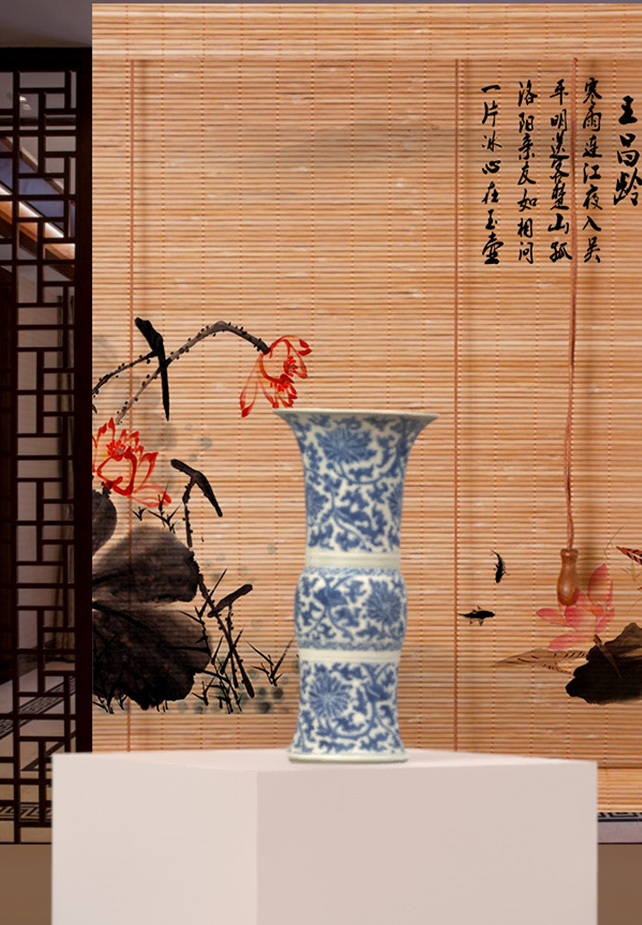 王昌龄
寒雨连江夜入吴
平明送客楚山孤
洛阳亲友如相问
一片冰心在玉壶